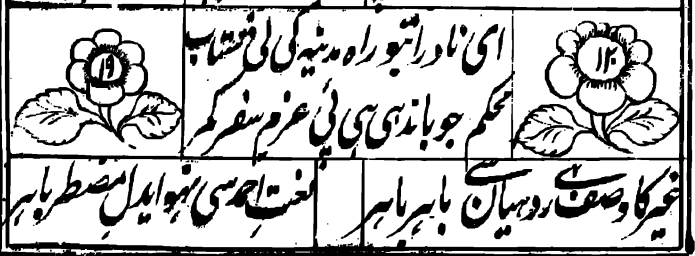 ۱۲۰
ای نادر اتبو راہ مدینہ کی لی شتاب
محکم جو باندہی ہی پئی عزم سفر کمر
۱۹
غیر کا وصف ہی رو ہیان سی باہر باہر
نعت احمد سی نہو ایدل مضطر باہر